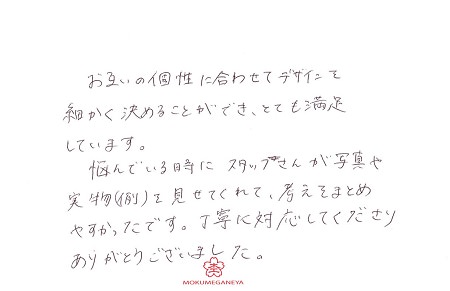 お互いの個性に合わせてデザインを
細かく決めることができ、とても満足
しています。
悩んでいる時にスタッフさんが写真や
実物(例)を見せてくれて、考えをまとめ
やすかったです。丁寧に対応してくださり
ありがとうございました。
MOKUMEGANEYA